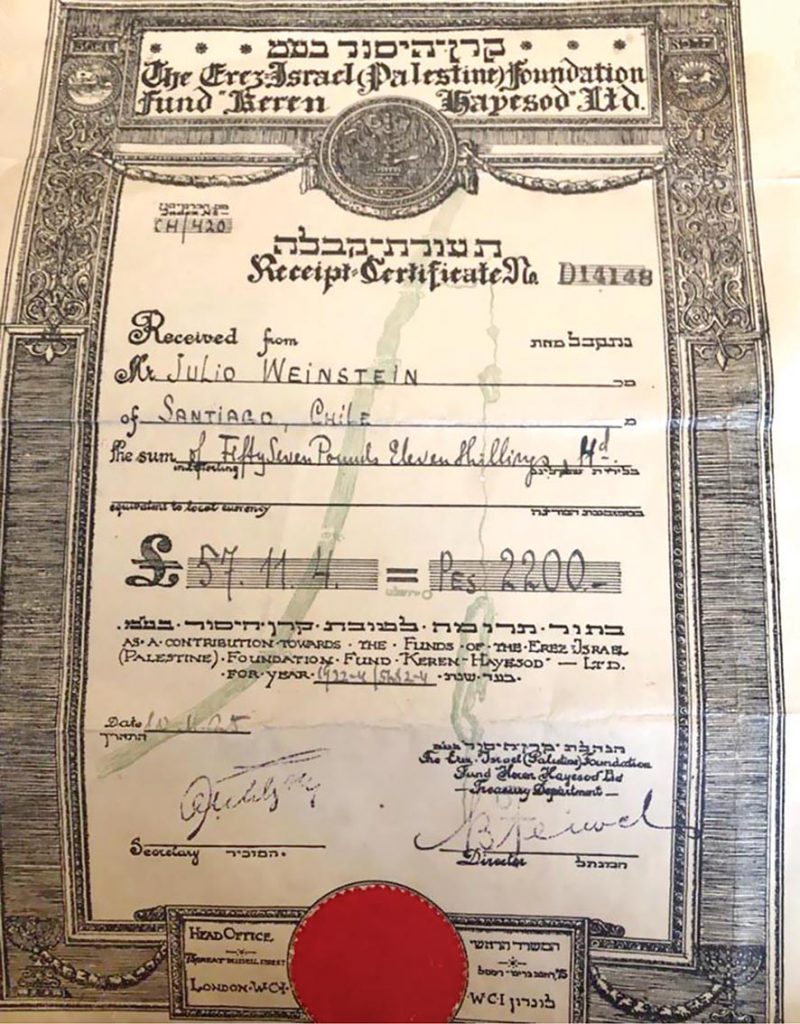 קרן־היסוד בע״מ
The Erez-Israel (Palestine) Foundation
Fund "Keren Hayesod" Ltd.
CH/420
תעודת־קבלה
Receipt-Certificate No. D14148
Received from נתקבל מאת
Mr JULIO WEINSTEIN מר
of SANTIAGO, CHILE מ
the sum of Fifty Seven Pounds Eleven Shillings, 4d.
in £ sterling
equivalent to local currency
£ 57. 11. 4. = PES 2200.-
בתור תרומה לטובת קרן־היסוד בע״מ.
AS·A·CONTRIBUTION·TOWARDS·THE·FUNDS·OF·THE·EREZ-ISRAEL
(PALESTINE)·FOUNDATION·FUND·"KEREN-HAYESOD"—LTD.
·FOR·YEAR· בעד שנת
Date
התאריך
הנהלת קרן־היסוד בע״מ
The Erez-Israel (Palestine) Foundation
Fund Keren Hayesod Ltd
—Treasury Department—
Secretary המזכיר
Director המנהל
HEAD OFFICE
GREAT RUSSELL STREET
LONDON·W·C·1
המשרד הראשי
לונדון W·C·1